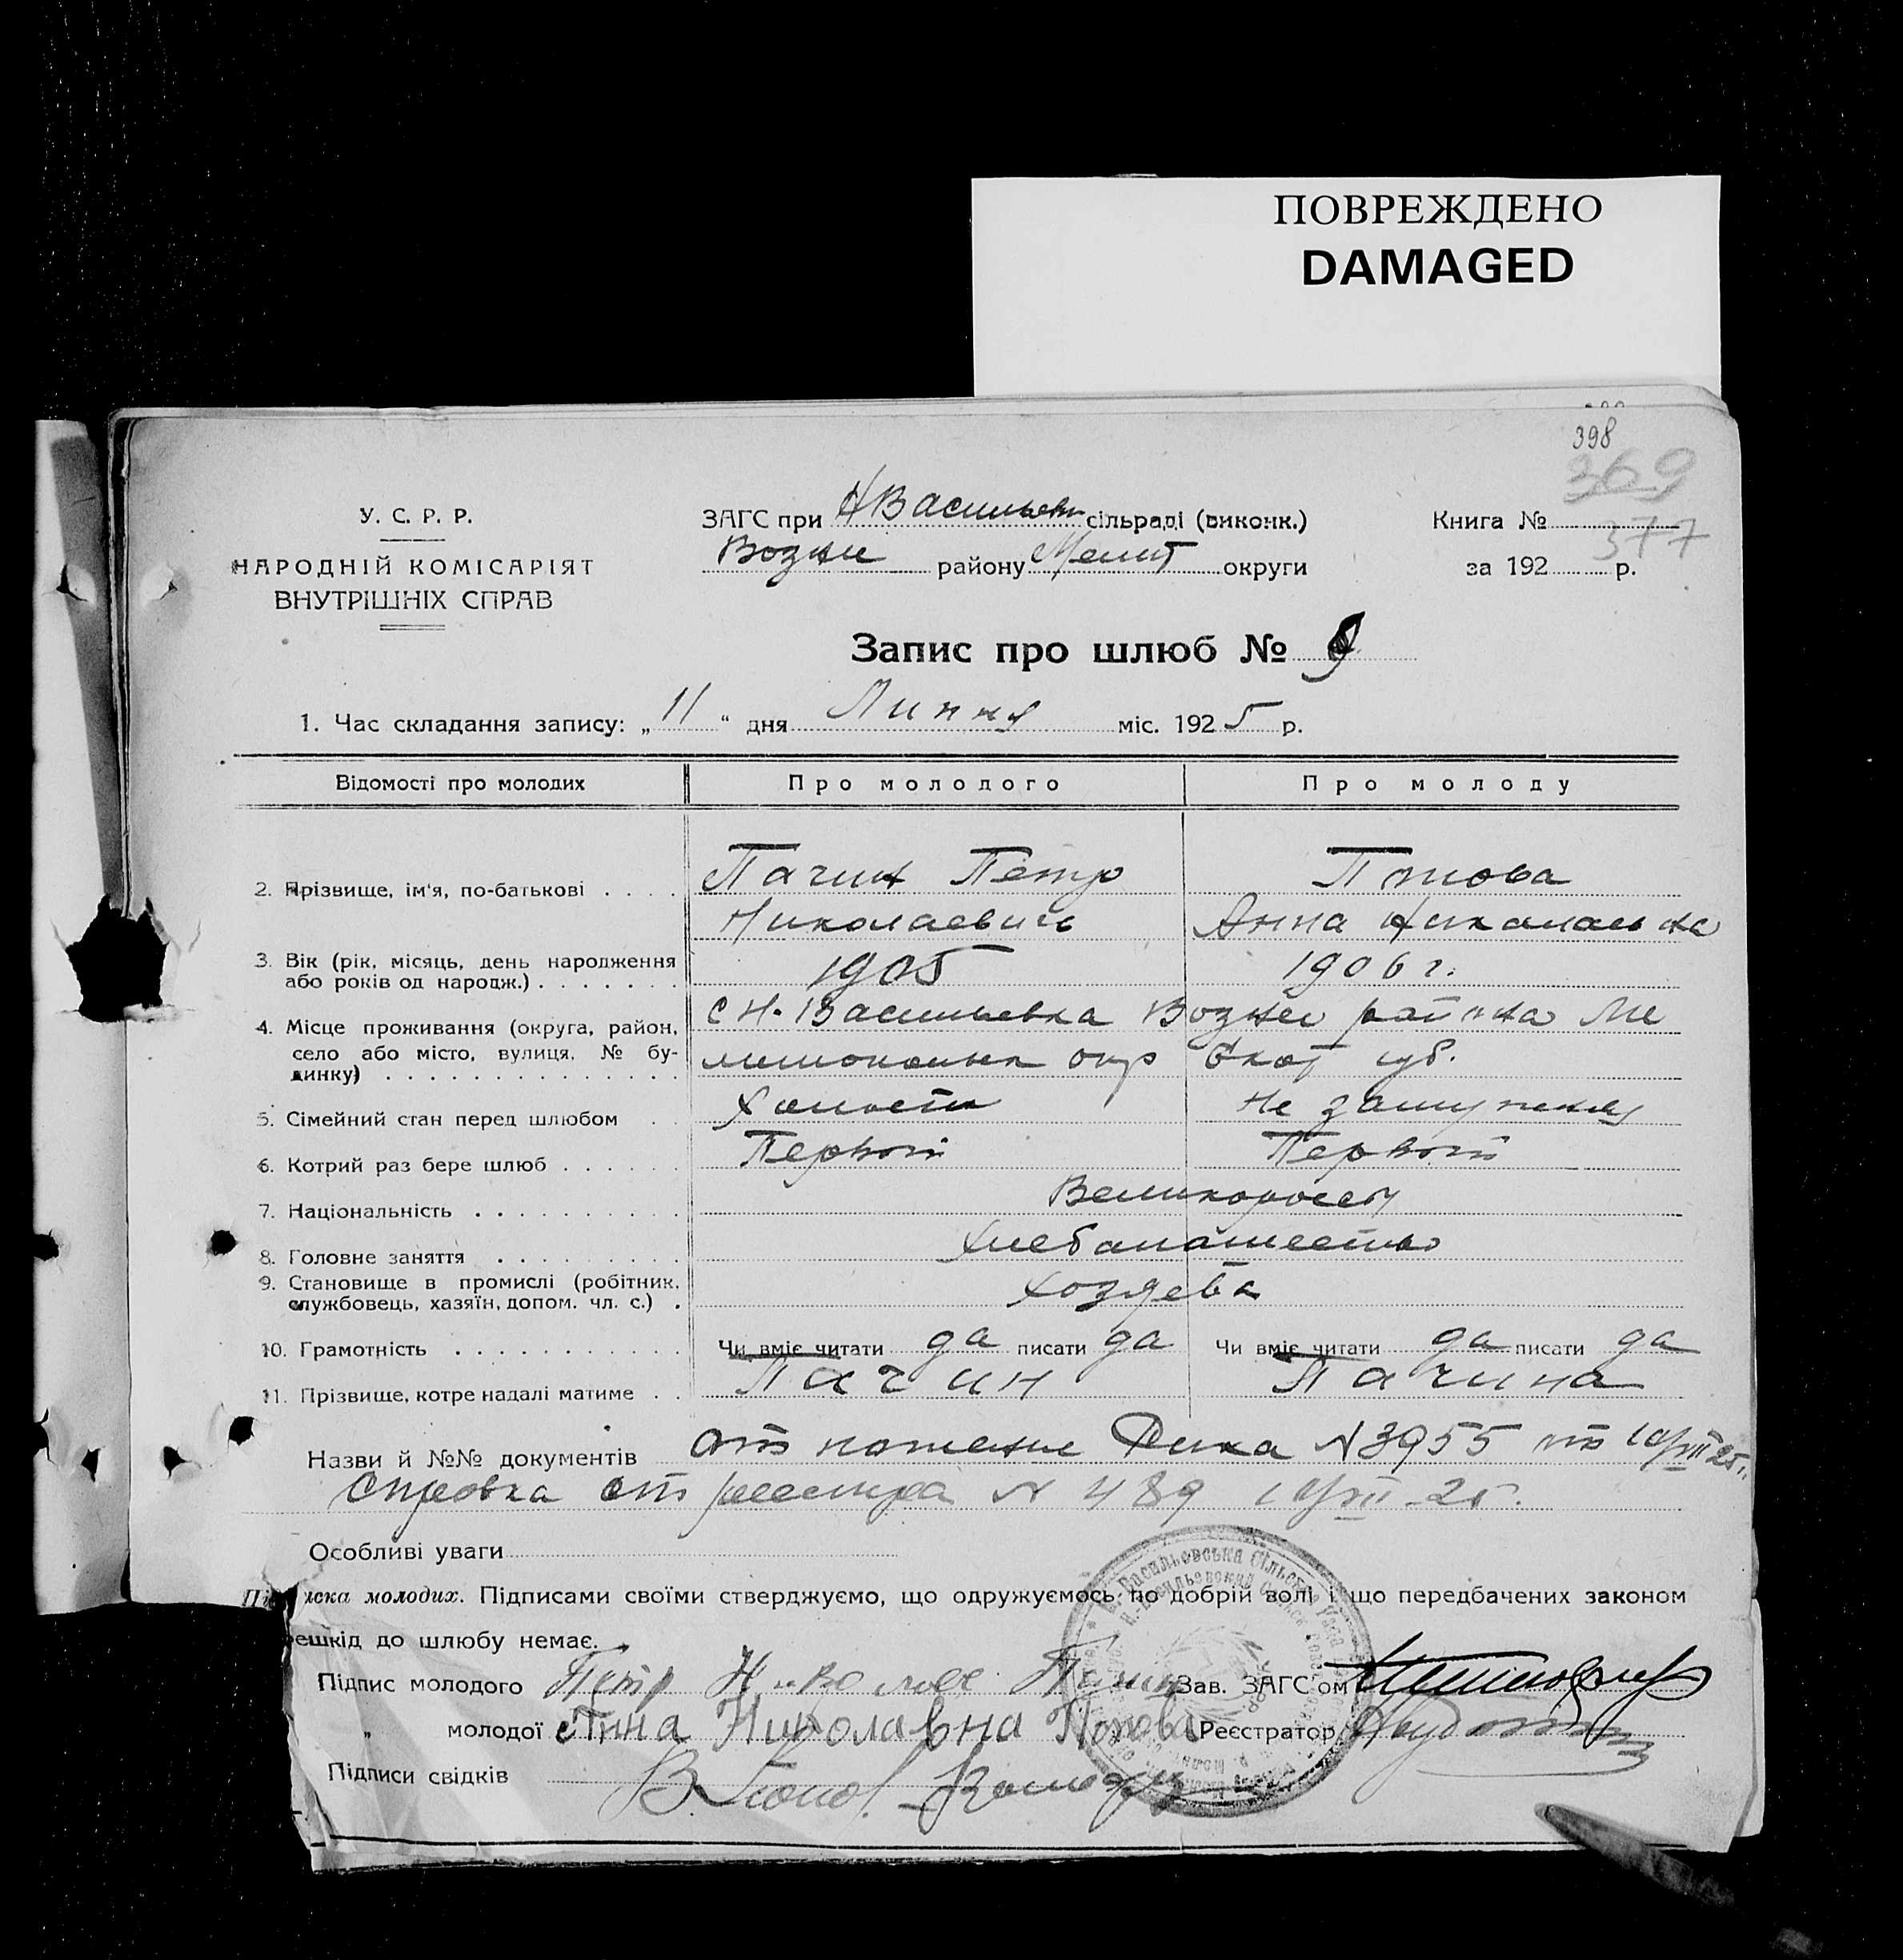 ПОВРЕЖДЕНО
DAMAGED
398
369
377
У. С. Р. Р.
НАРОДНІЙ КОМІСАРІЯТ
ВНУТРІШНІХ СПРАВ
ЗАГС при Н Васильевк сільраді (виконк.)
району Мелит округи
Книга №
за 192 р.
Запис про шлюб № 9
1. Час складання запису: „ 11 “ дня Липня міс. 1925 р.
Відомості про молодих Про молодого Про молоду
2. Прізвище, ім'я, по-батькові . . . . Пачин Петр Попова
Николаевич Анна Николаевна
3. Вік (рік, місяць, день народження 1905 1906 г.
або років од народж.) . . . . . . .
4. Місце проживання (округа, район, с Н. Васильевка Вознес района Ме
село або місто, вулиця, № бу- литопольск окр Екат губ.
динку) . . . . . . . . . . . . . .
5. Сімейний стан перед шлюбом . . Холост Не замужняя
6. Котрий раз бере шлюб . . . . . . Первой Первой
7. Національність . . . . . . . . . . Великороссы
8. Головне заняття . . . . . . . . . Хлебопашество
9. Становище в промислі (робітник,
службовець, хазяїн, допом. чл. с.) . Хозяева
10. Грамотність . . . . . . . . . . . Чи вміє читати да писати да Чи вміє читати да писати да
11. Прізвище, котре надалі матиме . . Пачин Пачина
Назви й №№ документів N 3955 от 10/VII 25 г.
Справка от N 489 10/VII - 25 г.
Особливі уваги
иска молодих. Підписами своїми стверджуємо, що одружуємось по добрій волі і що передбачених законом
ешкід до шлюбу немає.
Підпис молодого Петр Зав. ЗАГС'ом
„ молодої Анна Николавна Попова Реєстратор
Підписи свідків В. Попов